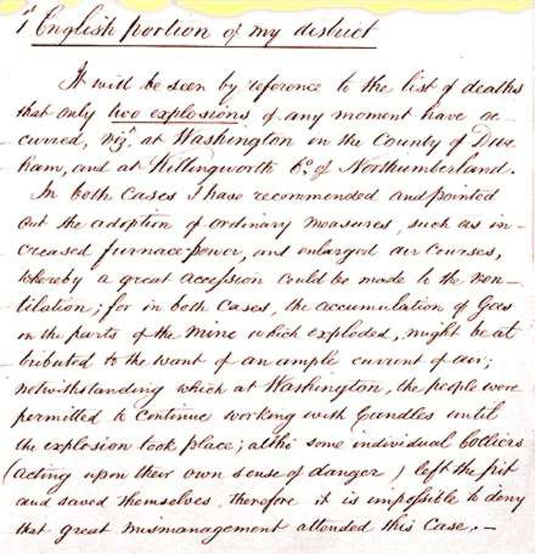 1st English portion of my district
It will be seen by reference to the list of deaths
that only two explosions of any moment have oc-
curred, vizt. at Washington in the County of Dur
ham, and at Killingworth Co. of Northumberland.
In both cases I have recommended and pointed
out the adoption of ordinary measures, such as in-
creased furnace-power, and enlarged air courses,
whereby a great accession could be made to the ven-
tilation; for in both cases, the accumulation of Gas
in the parts of the mine which exploded, might be at
tributed to the want of an ample current of air;
notwithstanding which at Washington, the people were
permitted to continue working with Candles until
the explosion took place; altho some individual Colliers
(acting upon their own sense of danger) left the pit
and saved themselves, therefore it is impossible to deny
that great mismanagement attended this Case.—